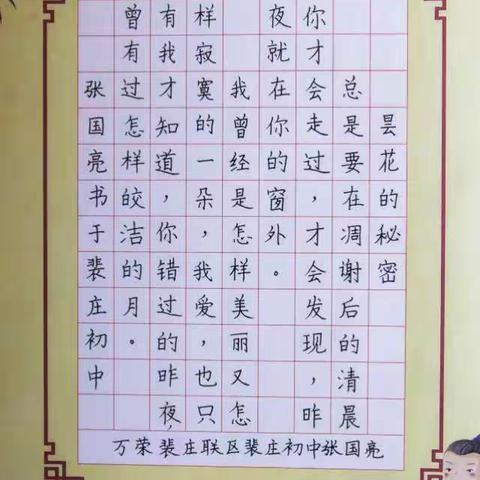 昙花的秘密
总是要在凋谢后的清晨
你才会走过，才会发现，昨
夜就在你的窗外。
我曾经是怎样美丽又怎
样寂寞的一朵，我爱，也只
有我才知道，你错过的昨夜，
曾有过怎样皎洁的月。
张国亮书于裴庄初中
万荣裴庄联区裴庄初中张国亮